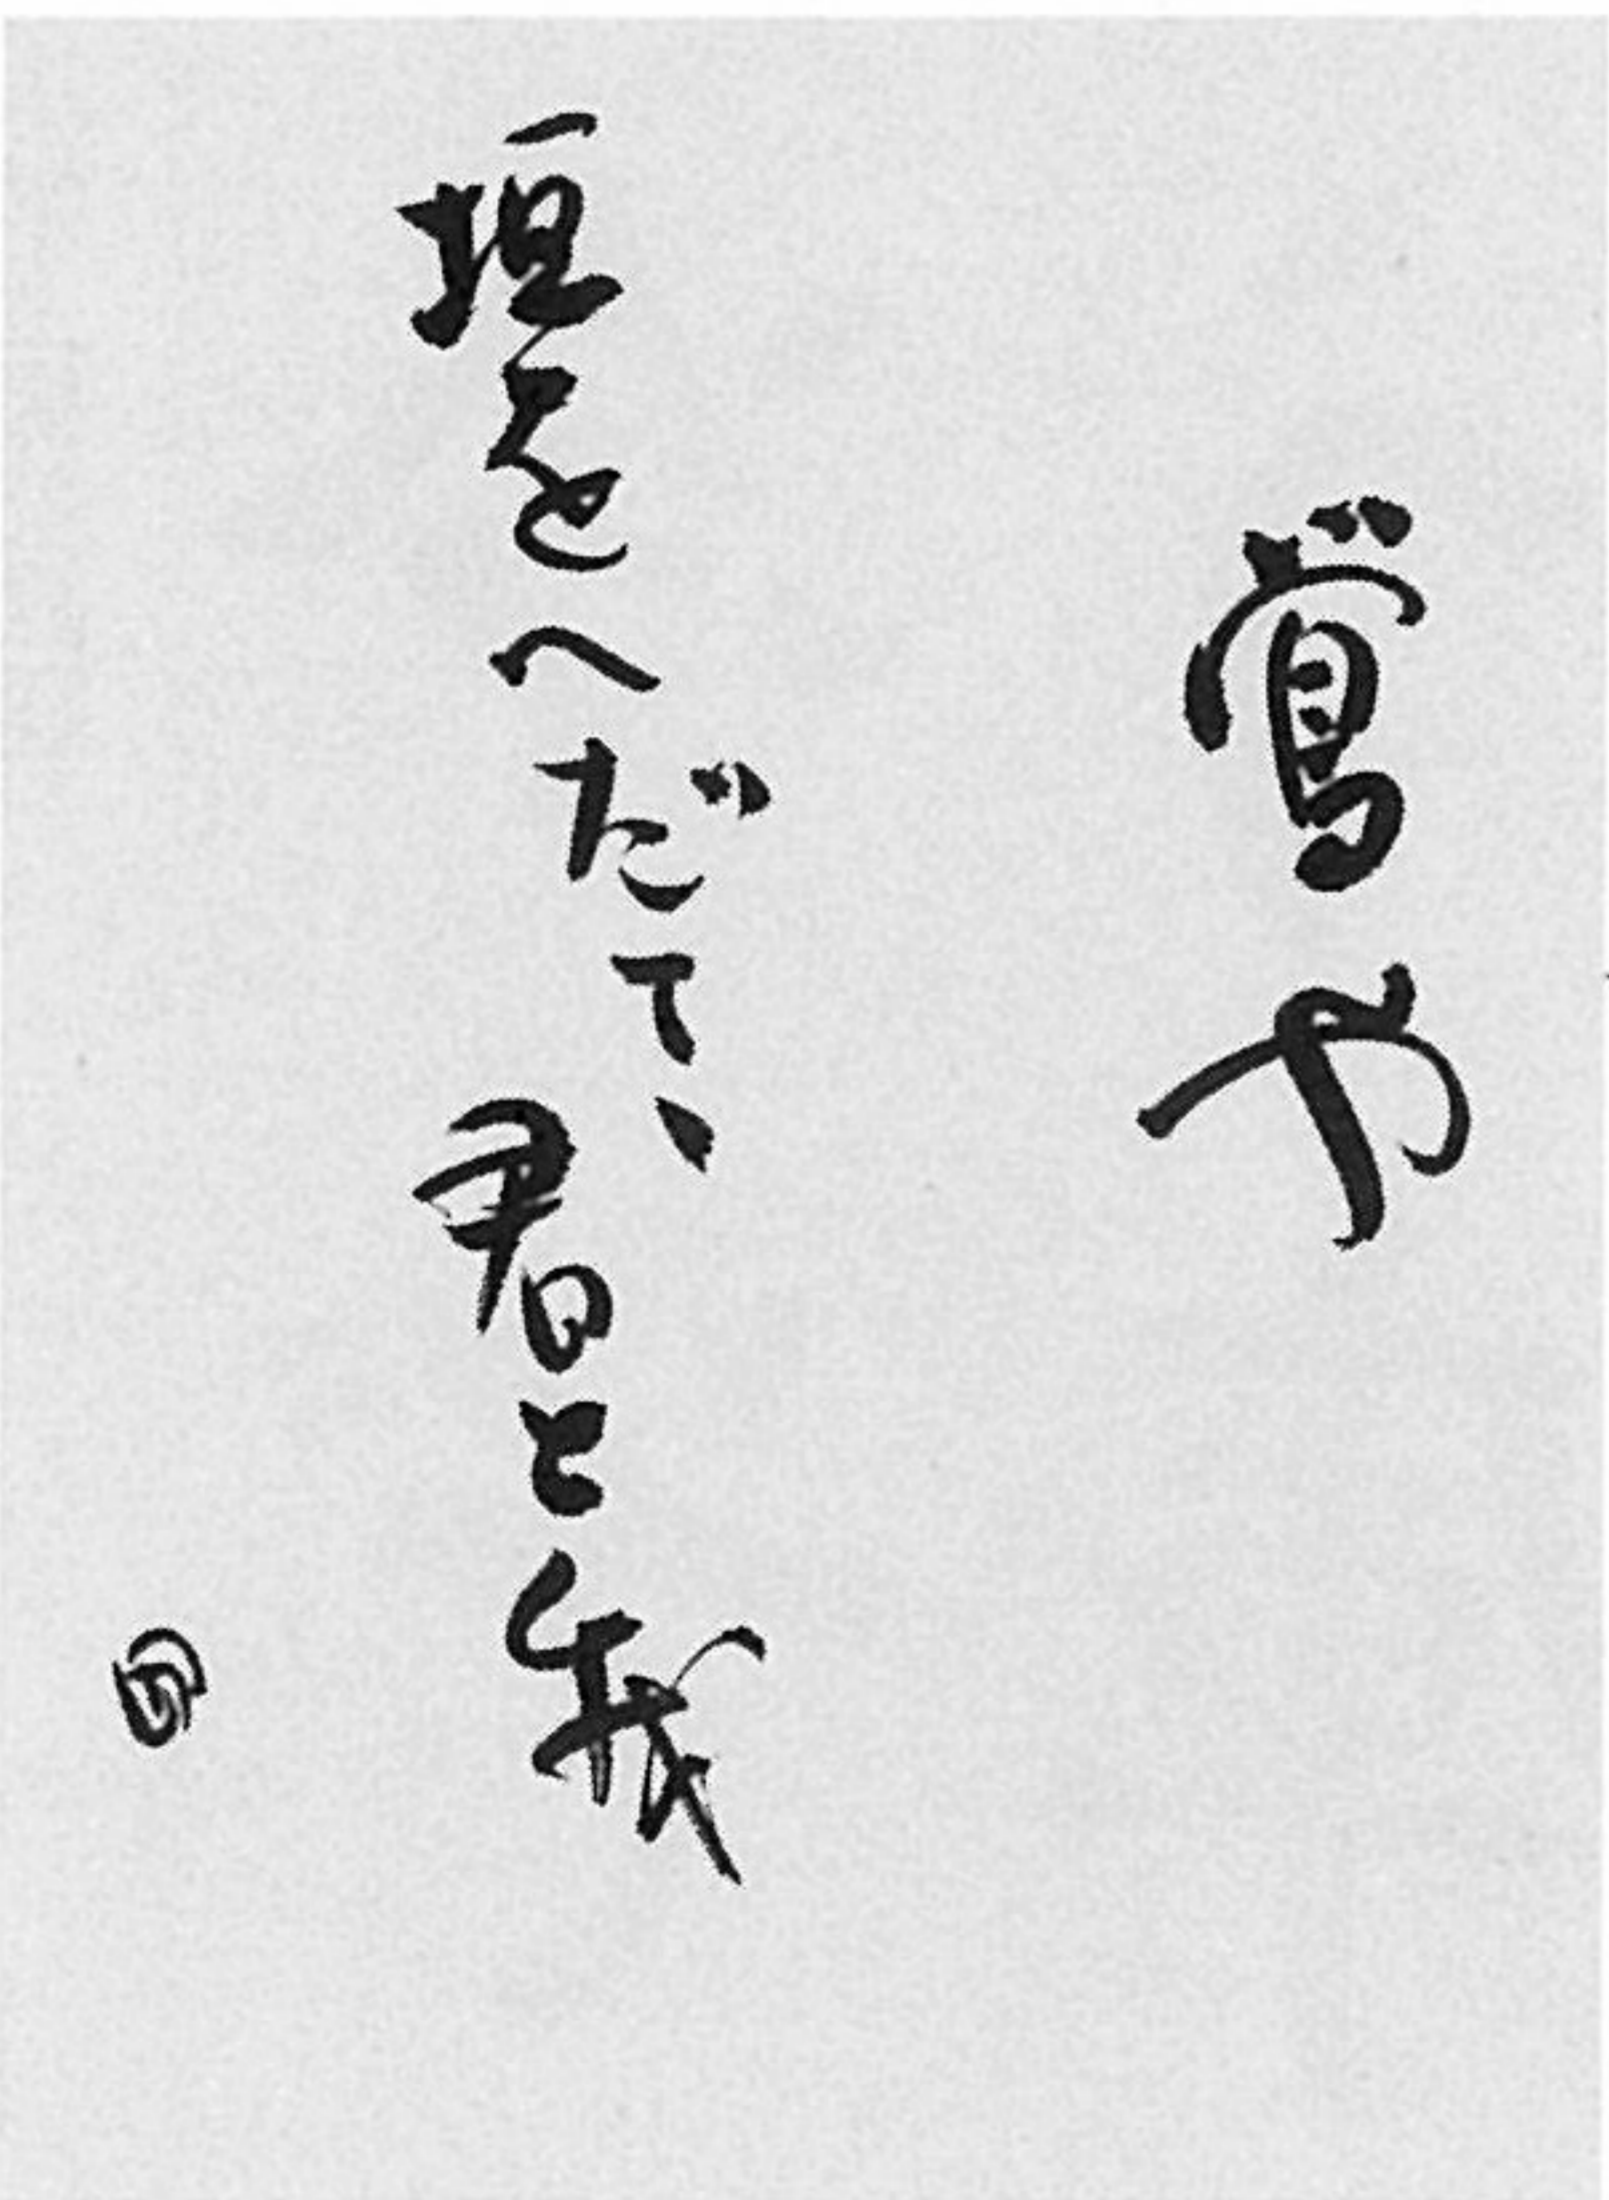 鶯や
垣をへだてゝ君と我